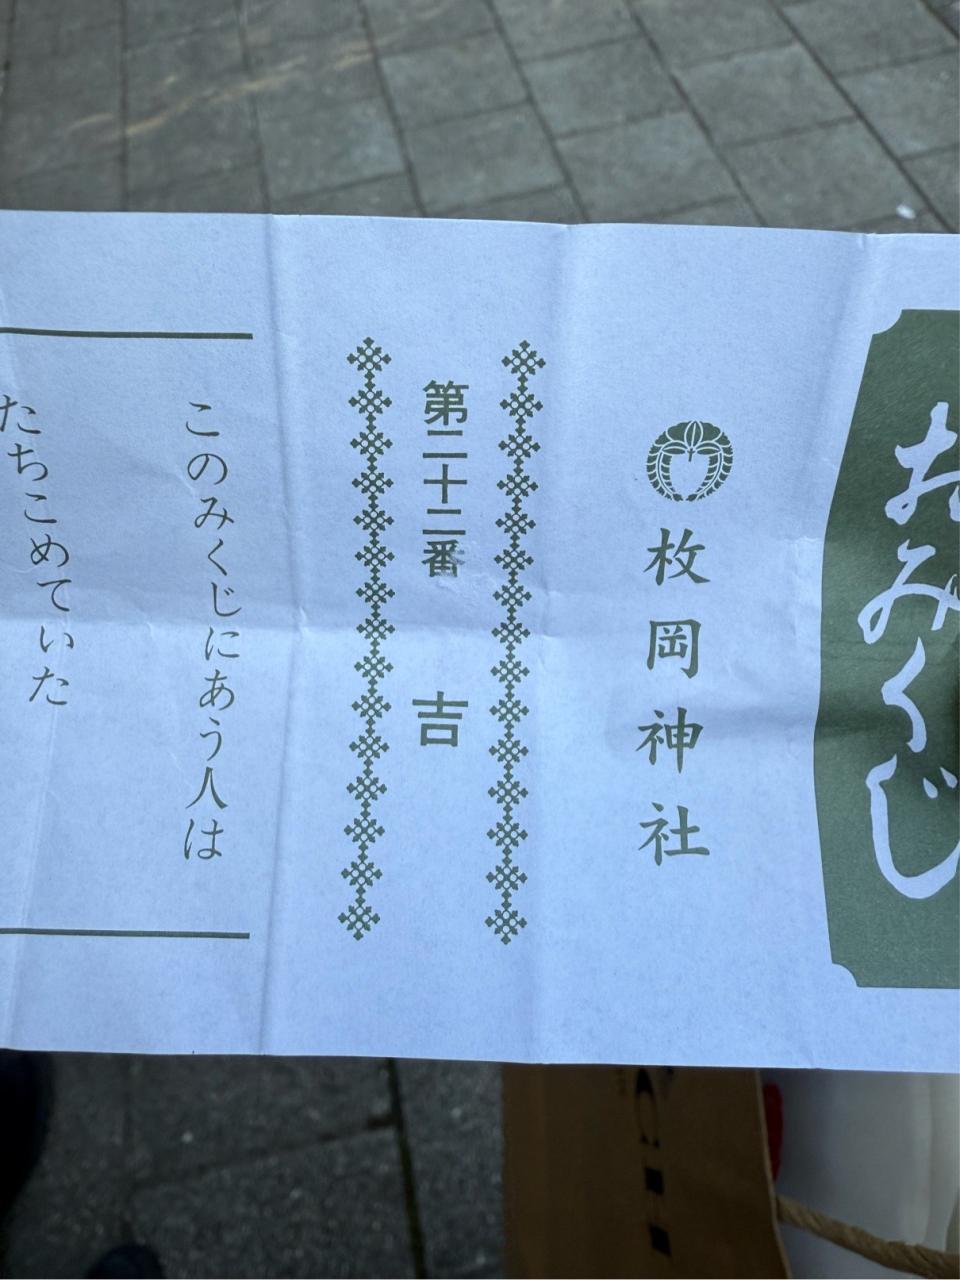 おみくじ
枚岡神社
第二十二番 吉
このみくじにあう人は
たちこめていた